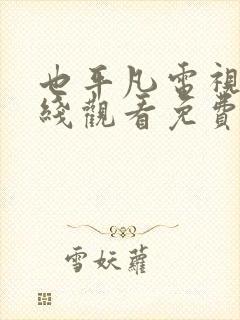 也平凡電視
綫觀看免費
雪妖蘿